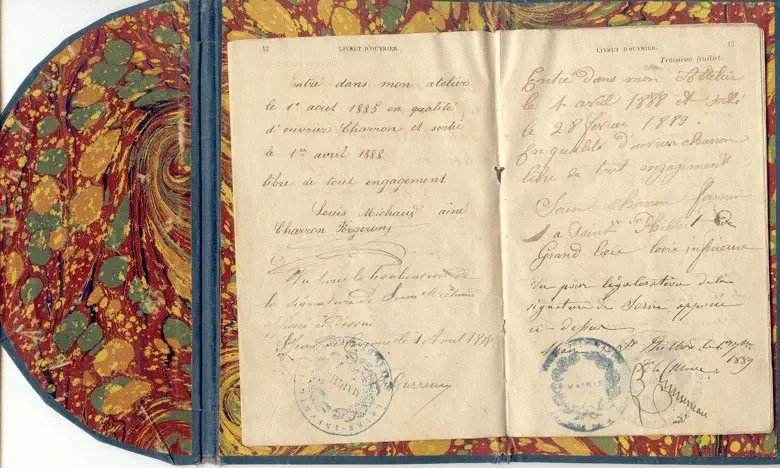 12
LIVRET D'OUVRIER.
Entré dans mon atelier
le 1er aout 1885 en qualité
d'ouvrier Charron et sortie
le 1er avril 1888
libre de tout engagement
Louis Michaud ainé
Charron Forgeron
Vu pour la légalisation de
la signature de Louis Michaud
le 1 Aout
MAIRIE
LIVRET D'OUVRIER.
13
Troisième feuillet.
Entré dans mon Attelier
le 4 avril 1888 et sortie
le 28 février 1889.
En qualité d'ouvrier charron
libre de tout engagement
Sorin charron
a Saint Philbert de
Grand lieu Loire inférieure
Vu pour légalisation de la
signature de Sorin apposée
ci-dessus
St Philbert, le
1889
Le Maire
MAIRIE